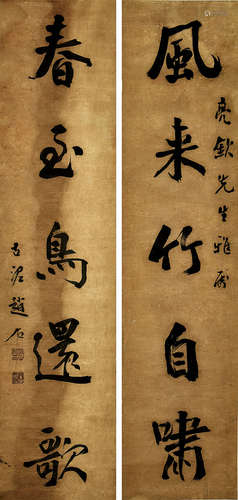 風来竹自嘯
亮欽先生雅屬
春至鳥還歌
古渥趙石